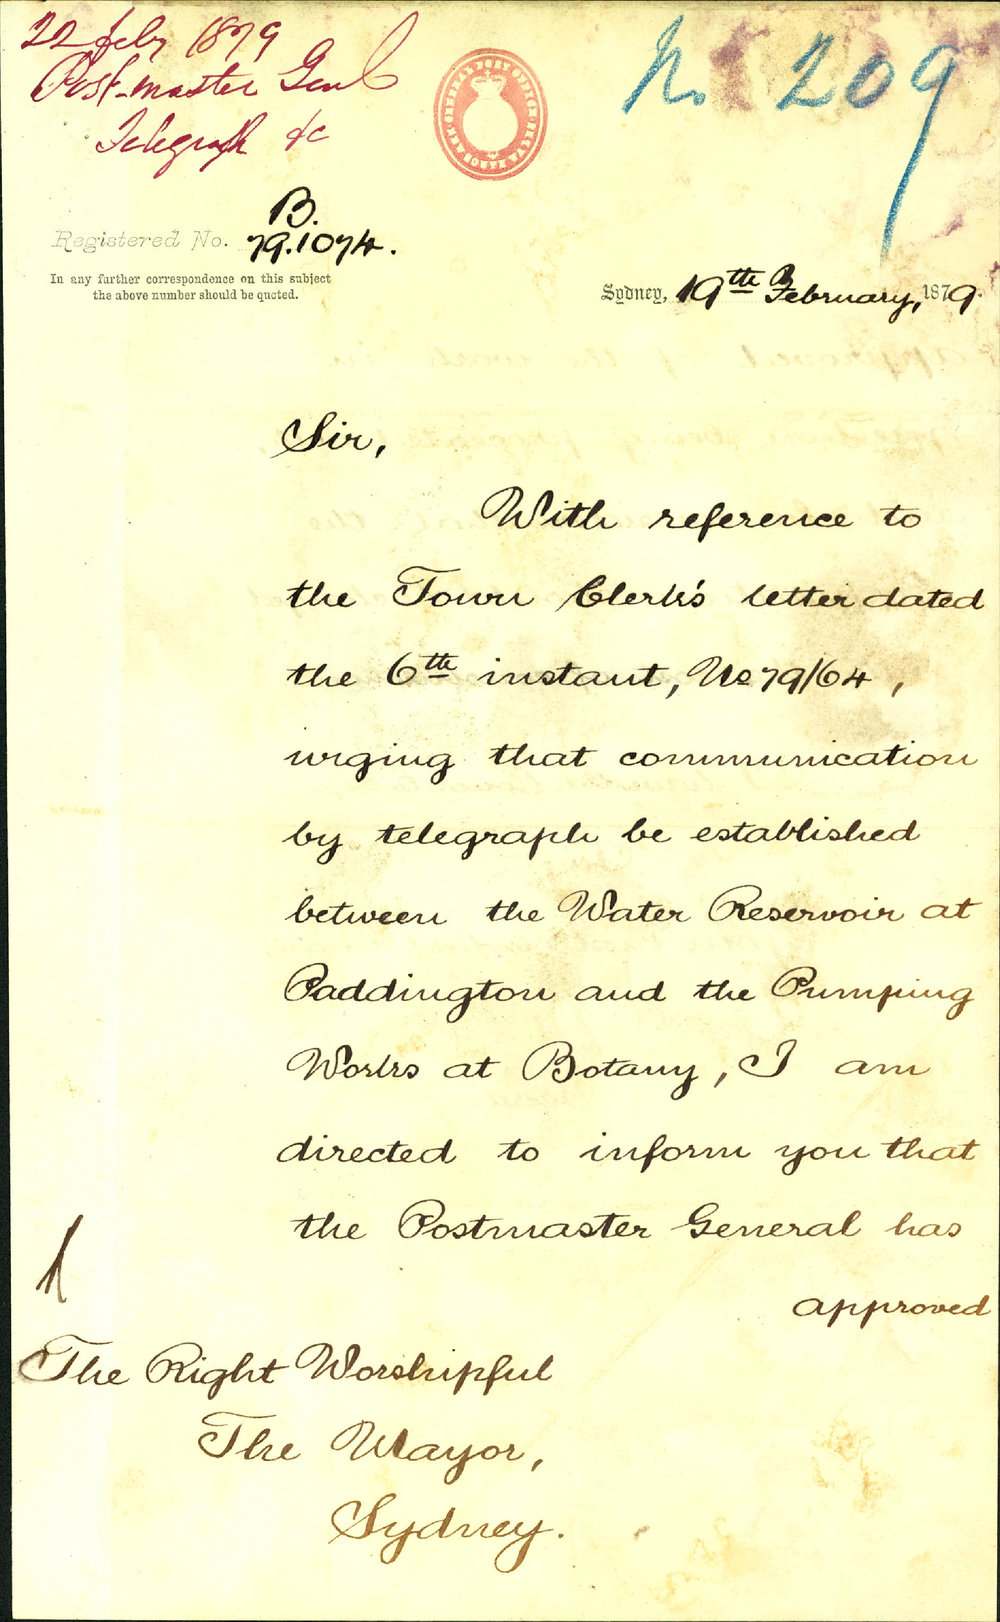 22 Feby 1879
Post-master Genl
Telegraph &c
No 209
B.
Registered No. 79.1074.
In any further correspondence on this subject
the above number should be quoted.
Sydney, 19th February, 1879.
Sir,
With reference to
the Town Clerk's letter dated
the 6th instant, No 79/64,
urging that communication
by telegraph be established
between the Water Reservoir at
Paddington and the Pumping
Works at Botany, I am
directed to inform you that
the Postmaster General has
approved
The Right Worshipful
The Mayor,
Sydney.